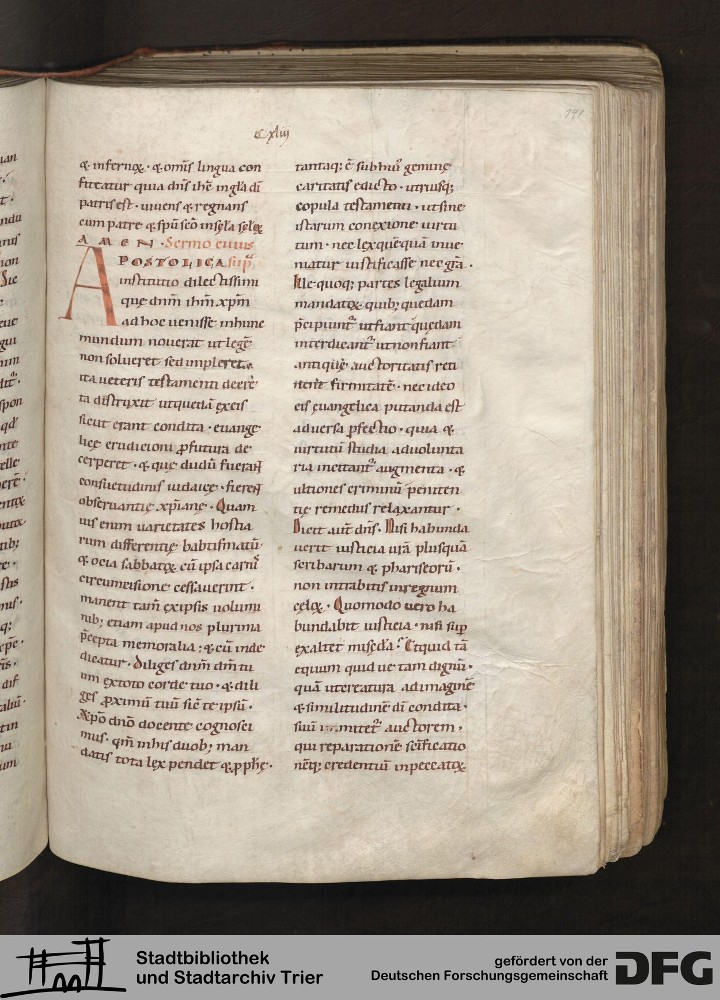 C xliij
141
& infernoꝝ · & om̅s lingua con
fiteatur quia dn̅s ih̅c ingl̅a di̅
patris est · uiuens & regnans
cum patre & sp̅u sc̅o in sęl̅a sęl̅oꝝ
A M E N · Sermo cuius
APOSTOLICA sup̅
institutio dilectissimi
que dnm̅ ih̅m xp̅m
ad hoc uenisse in hunc
mundum nouerat ut legē
non solueret sed impleret ·
ita ueteris testamenti decre
ta distinxit ut quędā ex eis
sicut erant condita · euange
licę erudicioni ꝓfutura de
cerperet · & quę dudū fuerant
consuetudinis iudaicę · fierent
obseruantię xp̅ianę · Quam
uis enim uarietates hostia
rum differentię babtismatū ·
& ocia sabbatoꝝ cū ipsa carnis
circumcisione cessauerint ·
manent tam̅ ex ipsis uolumi
nib; etiam apud nos plurima
p̅cepta memoralia · & cū inde
dicatur · Diliges dnm̅ dm̅ tu
um ex toto corde tuo · & dili
ges ꝓximū tuū sic̅ te ipsū ·
Xp̅o dn̅o docente cognosci
mus · qm̅ in his duob; man
datis tota lex pendet & ꝓph̅ę ·
tantaq; ē sub hui᾽ geminę
caritatis educto · utriusq;
copula testamenti · ut sine
istarum conexione uirtu
tum · nec lex quēquā inue
niatur iustificasse nec gr̅a ·
Ille quoq; partes legalium
mandatoꝝ quib; quędam
p̅cipiunt᷑ ut fiant quędam
interdicant᷑ ut non fiant
antiquę auctoritatis reti
nere firmitatē · nec ideo
eis euangelica putanda est
aduersa ꝓfectio · quia &
uirtutū studia ad uolunta
ria incitant᷑ augmenta · &
ultiones criminū peniten
tię remediis relaxantur ·
Dicit aut̅ dn̅s · Nisi habunda
uerit iusticia ur̅a plusquā
scribarum & phariseorū ·
non intrabitis in regnum
celoꝝ · Quomodo uero ha
bundabit iusticia · nisi sup̅
exaltet mis̅c̅dia · Et quid tā
equum quid ue tam dignū ·
quā ut creatura ad imaginē
& similitudinē di̅ condita ·
suū imitet᷑ auctorem ·
qui reparationē sc̅ificatio
nēq; credentiū in peccatoꝝ
Stadtbibliothek
und Stadtarchiv Trier
gefördert von der
Deutschen Forschungsgemeinschaft
DFG